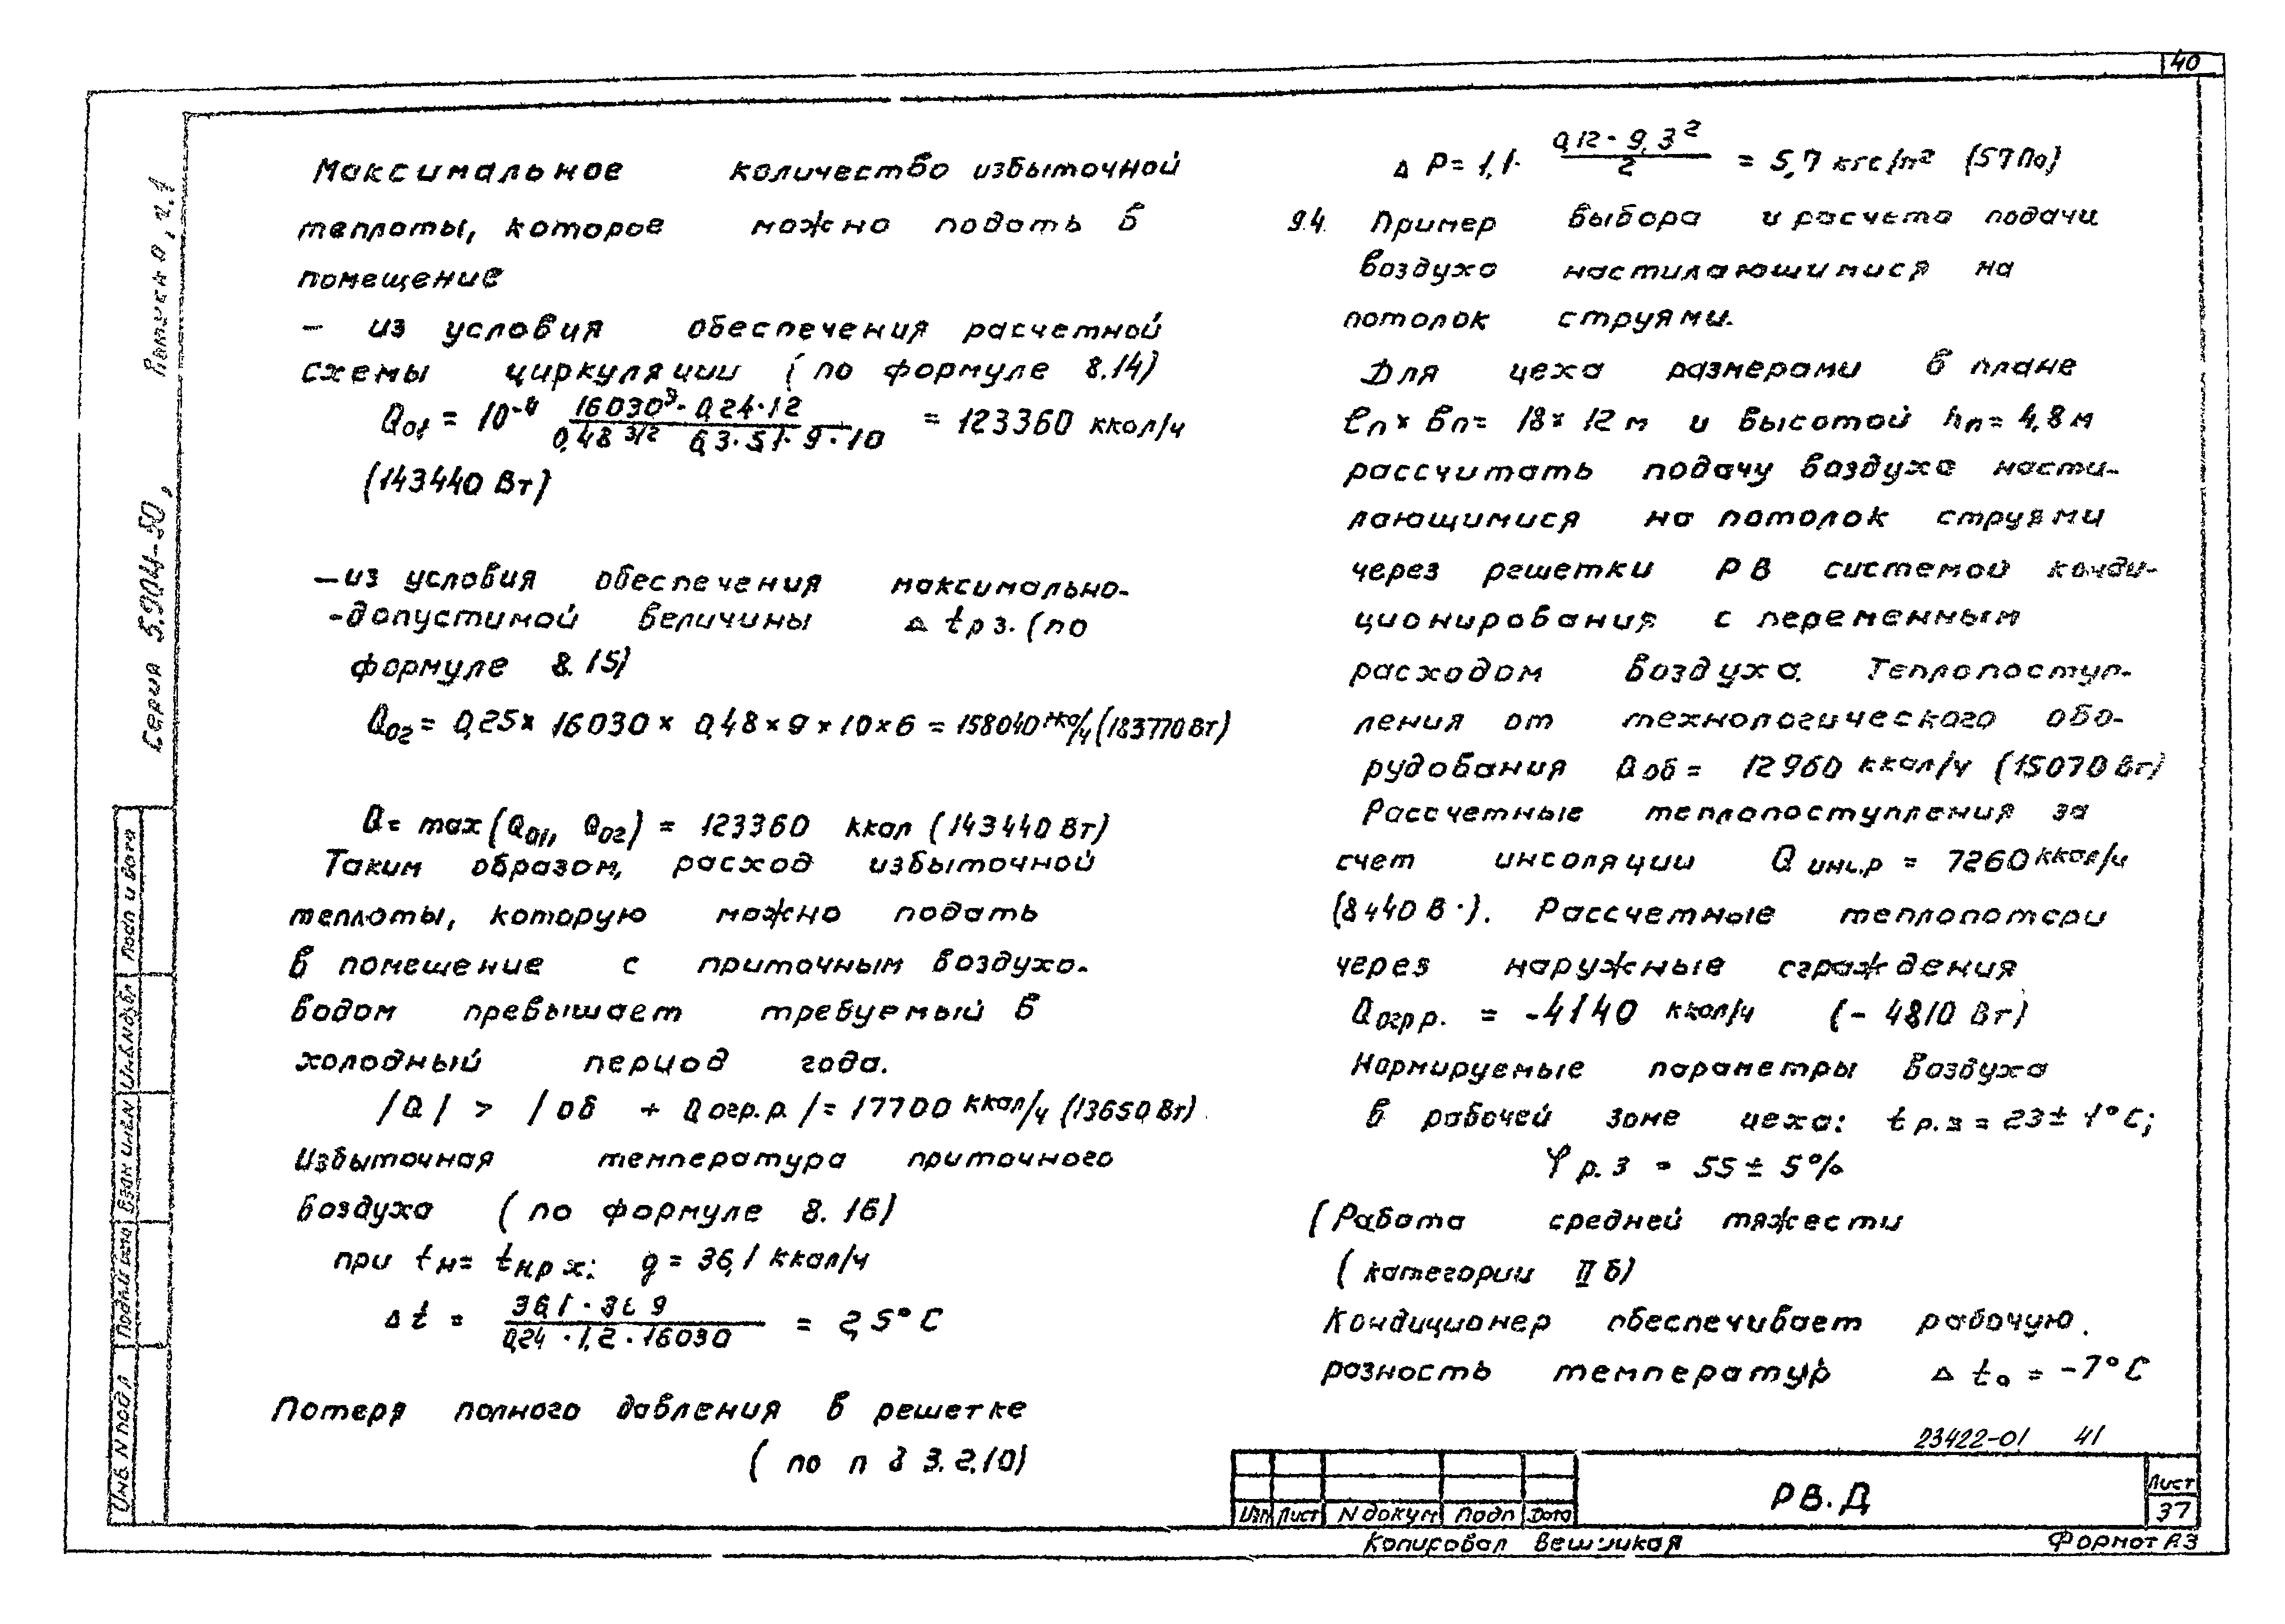 40
Максимальное количество избыточной
теплоты, которое можно подать в
помещение
– из условия обеспечения расчетной
схемы циркуляции (по формуле 8.14)
Q01 = 10-4 16030³·0,24·12 / 0,48 3/2 6,3·5,1·9·10 = 123360 ккал/ч
(143440 Вт)
– из условия обеспечения максимально-
-допустимой величины Δ tр з. (по
формуле 8.15)
Q02 = 0,25× 16030 × 0,48 × 9 × 10 × 6 = 158040 ккал/ч (183770 Вт)
Q = max (Q01, Q02) = 123360 ккал (143440 Вт)
Таким образом, расход избыточной
теплоты, которую можно подать
в помещение с приточным воздухо-
водом превышает требуемый в
холодный период года.
/Q/ > /об + Q огр.р./ = 17700 ккал/ч (13650 Вт)
Избыточная температура приточного
воздуха (по формуле 8.16)
при tн = tнр х: g = 36,1 ккал/ч
Δ t = 36,1 · / 0,24 · 1,2 · 16030 = 2,5° С
Потеря полного давления в решетке
(по п 8 3.2.10)
Δ P = 1,1· 0,12 · 9,3² / 2 = 5,7 кгс/м² (57 Па)
9.4. Пример выбора и расчета подачи
воздуха настилающимися на
потолок струями.
Для цеха размерами в плане
ℓп × вп = 18 × 12 м и высотой hп = 4,8 м
рассчитать подачу воздуха насти-
лающимися на потолок струями
через решетки РВ системой конди-
ционирования с переменным
расходом воздуха. Теплопоступ-
ления от технологического обо-
рудования Q об = 12960 ккал/ч (15070 Вт)
Рассчетные теплопоступления за
счет инсоляции Q инс.р = 7260 ккал/ч
(8440 В·). Рассчетные теплопотери
через наружные ограждения
Q огр р. = -4140 ккал/ч (- 4810 Вт)
Нормируемые параметры воздуха
в рабочей зоне цеха: t р.з = 23 ± 1° С;
φ р.з = 55 ± 5%
(Работа средней тяжести
(категории II б)
Кондиционер обеспечивает рабочую
разность температур Δ to = -7° С
23422-01 41
Изм Лист N докум Подп Дата
РВ.Д
Лист
37
Копировал
Формат А3
Серия 5.904-50, Выпуск 0, ч.1
Подп и дата
Инв.N дубл
Взам инв.N
Подп и дата
Инв. N подл